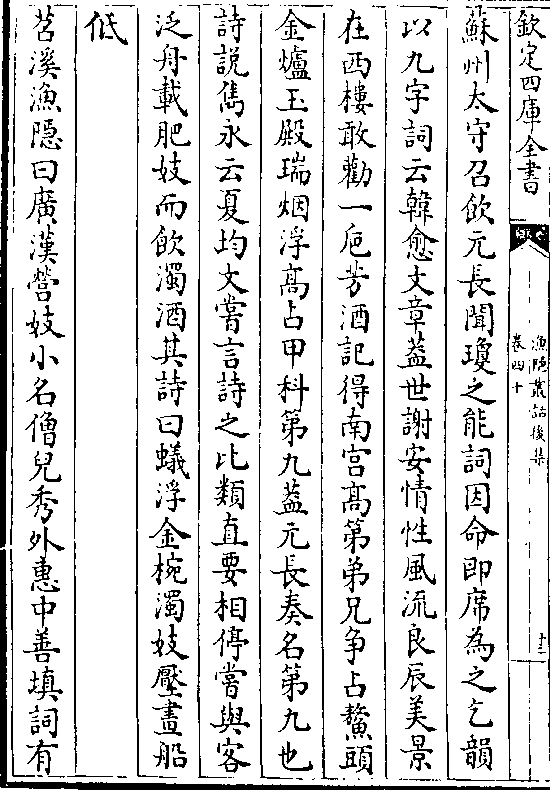 欽定四庫全書
漁隠叢話後集
卷四十
十三
蘇州太守召飲元長聞瓊之能詞因命即席為之乞韻
以九字詞云韓愈文章葢世謝安情性風流良辰美景
在西樓敢勸一巵芳酒記得南宫髙第弟兄争占鰲頭
金爐玉殿瑞烟浮髙占甲科第九葢元長奏名第九也
詩説雋永云夏均文嘗言詩之比類直要相停嘗與客
泛舟載肥妓而飲濁酒其詩曰蟻浮金椀濁妓壓畫船
低
苕溪漁隠曰廣漢營妓小名僧兒秀外惠中善填詞有